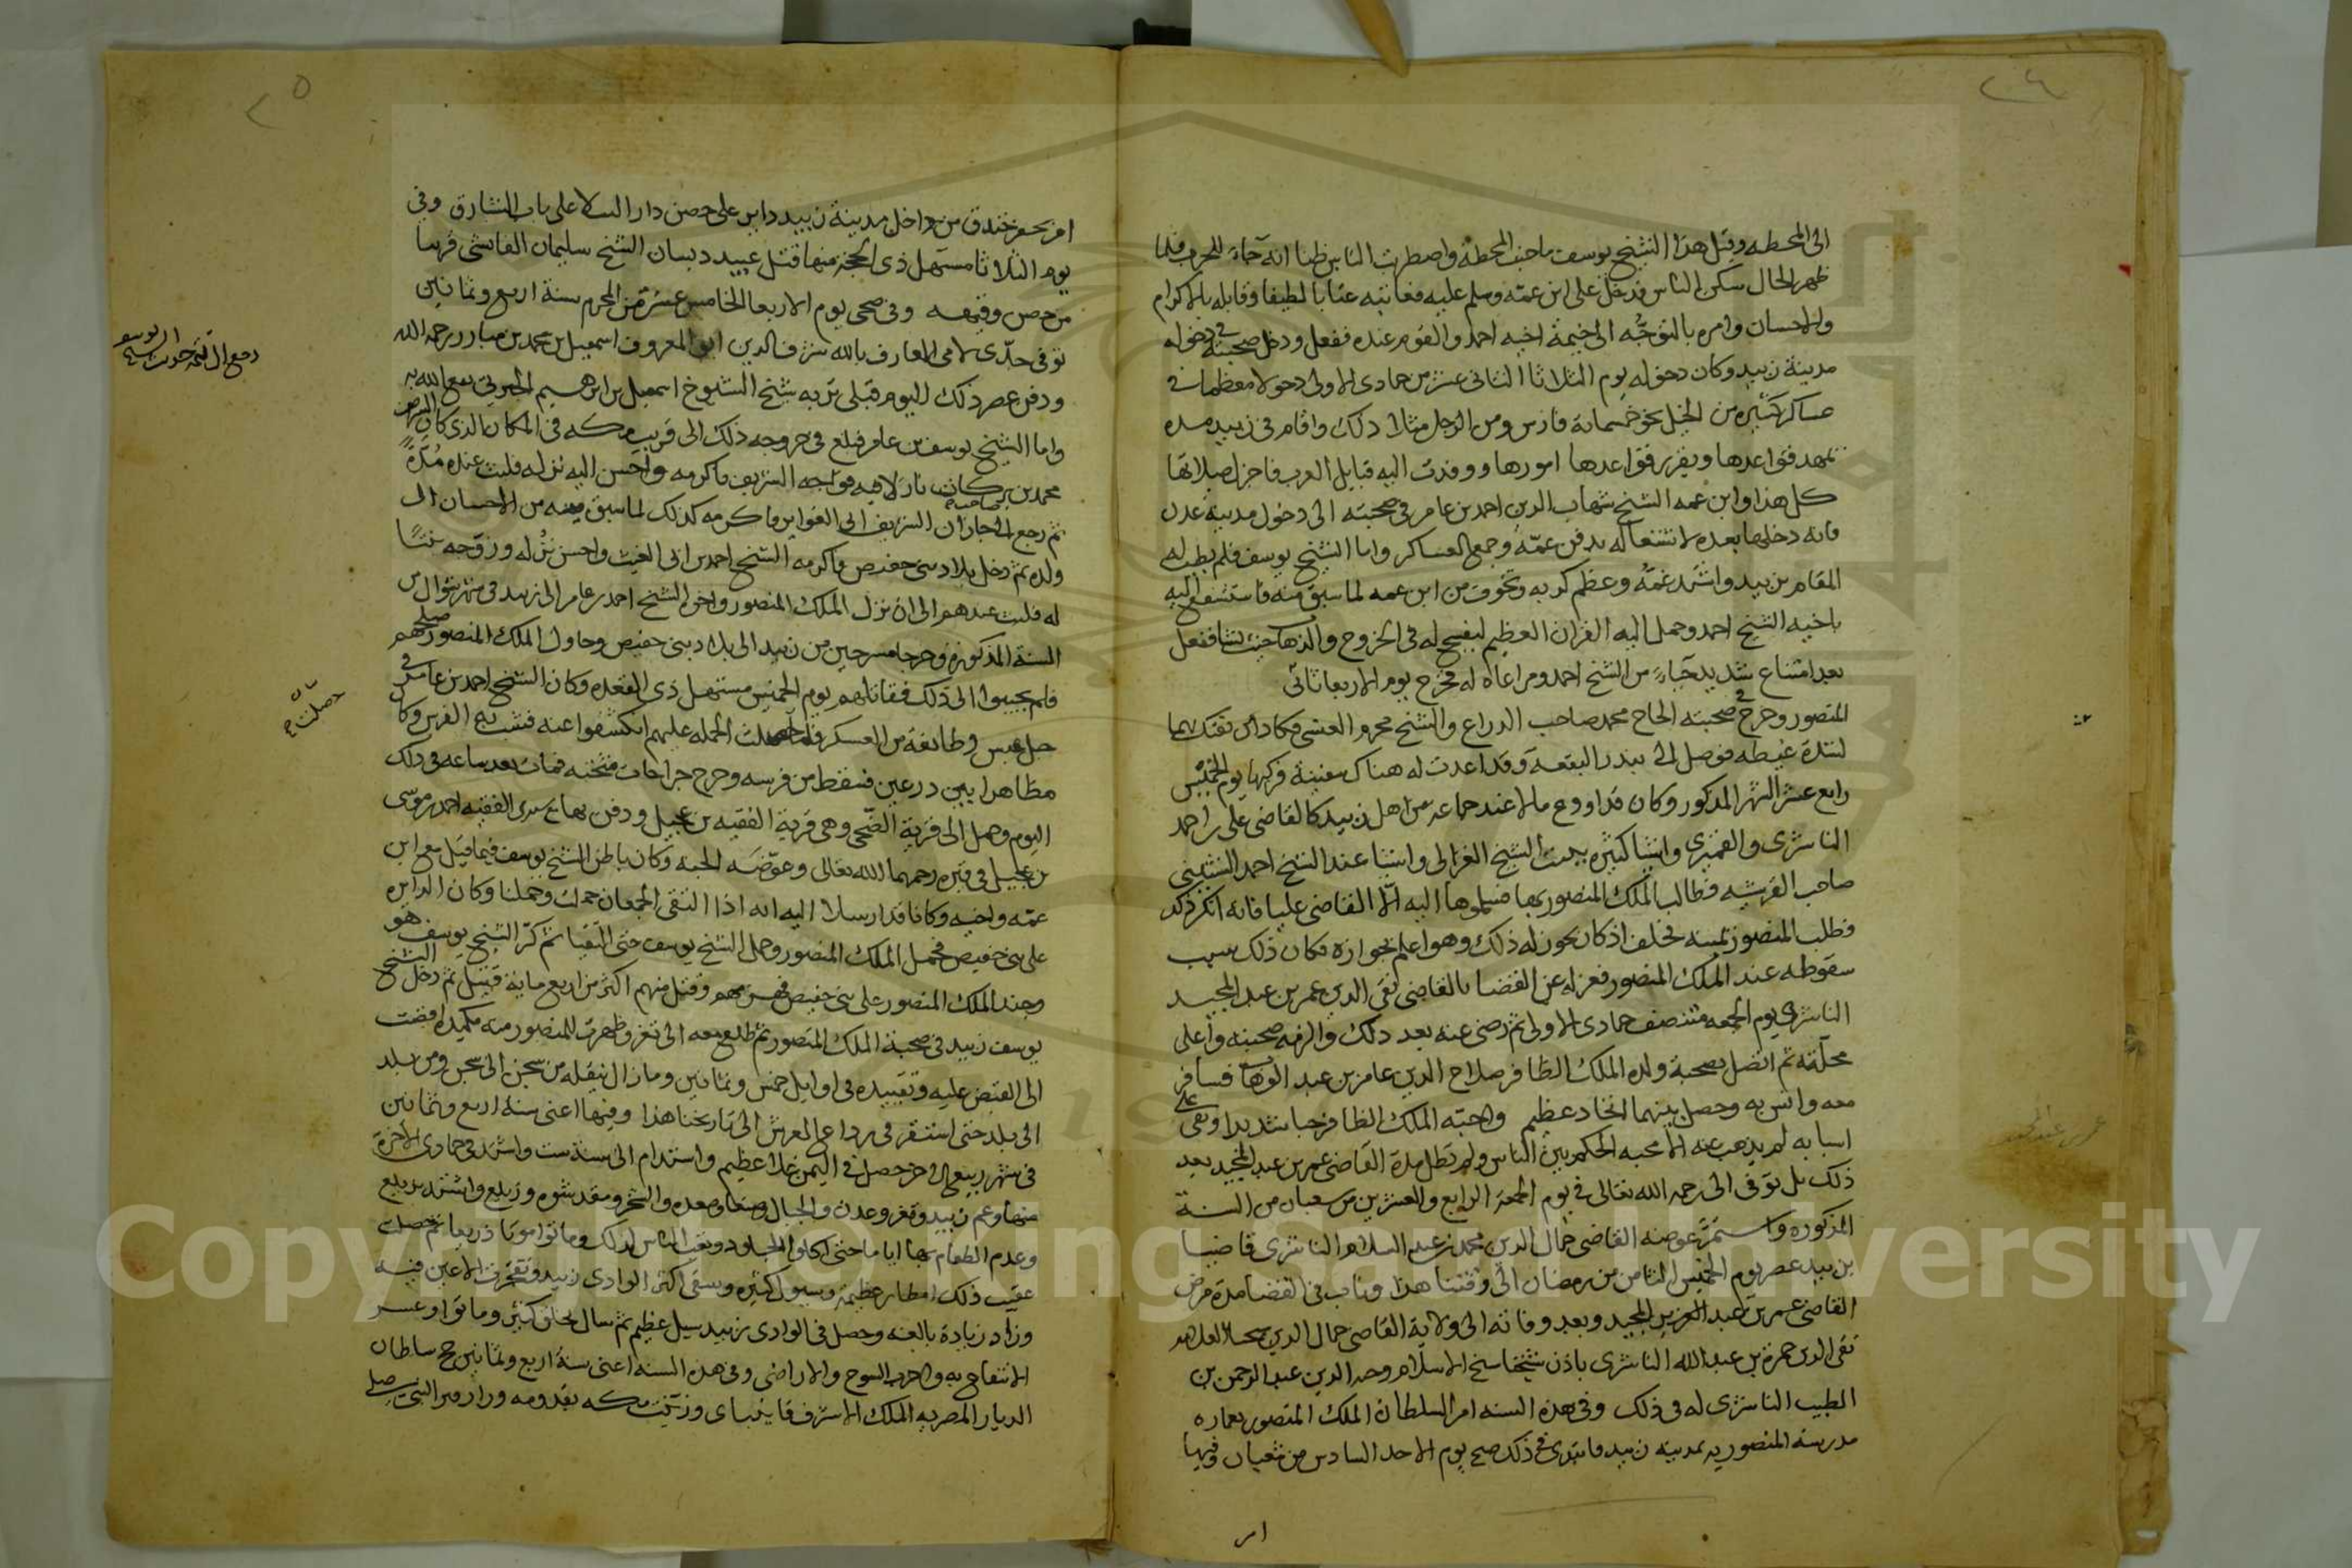 ٢٤
الى المحطه وقيل هذا الشيخ يوسف صاحب المحطة واضطرب الناس ظنا انه جاء للحرب فلما
ظهر الحال سكن الناس فدخل على ابن عمه وسلم عليه فعاتبه عتابا لطيفا وقابله بالاكرام
والاحسان وامره بالتوجه الى خيمة اخيه احمد والقوم عنده ففعل ودخل في صحبته دخوله
مدينة زبيد وكان دخوله يوم الثلاثا الثانى عشر من جمادى الاولى دخولا معظما في
عساكر كثيره من الخيل نحو خمسمائة فارس ومن الرجل مثلا ذلك واقام فى زبيد مده
يمهد قواعدها ويقرر قواعدها امورها ووفدت اليه قبايل العرب فاجزل صلاتها
كل هذا وابن عمه الشيخ شهاب الدين احمد بن عامر فى صحبته الى دخول مدينة عدن
فانه دخلها بعده لاشتغاله بدفن عمه وجمع العساكر واما الشيخ يوسف فلم يطب له
المقام بزبيد واشتد غمه وعظم كربه وتخوف من ابن عمه لما سبق منه فاستشفع اليه
باخيه الشيخ احمد وحمل اليه القران العظيم ليفسح له فى الخروج والذهاب حيث شا ففعل
بعد امتناع شديد حياء من الشيخ احمد ومراعاه له فخرج يوم الاربعا ثانى
المنصور وخرج فى صحبته الحاج محمد صاحب الدراع والشيخ محرم العنسى فكاد ان تفتك بهما
لشدة غيظه فوصل الى بندر البقعة وقد اعدت له هناك سفينة فركبها يوم الخميس
رابع عشر الشهر المذكور وكان قد اودع مالا عند جماعه من اهل زبيد كالقاضى على بن احمد
الناشرى والقميرى واشيا كثيره ببيت الشيخ الغزالى واشيا عند الشيخ احمد
صاحب القرشيه فطالب الملك المنصور بها فسلموها اليه الا القاضى عليا فانه انكر ذلك
فطلب المنصور يمينه فحلف اذ كان يجوز له ذلك وهو اعلم بجوازه فكان ذلك سبب
سقوطه عند الملك المنصور فعزله عن القضا بالقاضى تقى الدين عمر بن عبد المجيد
الناشرى يوم الجمعه منتصف جمادى الاولى ثم رضى عنه بعد ذلك والزمه صحبته واعلى
محلته ثم اتصل بصحبة ولده الملك الظافر صلاح الدين عامر بن عبد الوهاب فسافر
معه وانس به وحصل بينهما اتحاد عظيم واحبه الملك الظافر حبا شديدا وبقى على
اسبابه لم يذهب عنه الا محبه الحكم بين الناس ولم تطل مدة القاضى عمر بن عبد المجيد بعد
ذلك بل توفى الى رحمه الله تعالى فى يوم الجمعه الرابع والعشرين من شعبان من السنة
المذكوره واستمر عوضه القاضى جمال الدين محمد بن عبد السلام الناشرى قاضيا
بزبيد عصر يوم الخميس الثامن من رمضان الى وقتنا هذا وناب فى القضا مدة مرض
القاضى عمر بن عبد المجيد وبعد وفاته الى ولاية القاضى جمال الدين
تقى الدين حمزة بن عبد الله الناشرى باذن شيخنا شيخ الاسلام وجيه الدين عبد الرحمن بن
الطيب الناشرى له فى ذلك وفى هذه السنه امر السلطان الملك المنصور بعماره
مدرسته المنصوريه بمدينه زبيد فابتدى فى ذلك صبح يوم الاحد السادس من شعبان وفيها
امر
٢٥
امر بحفر خندق من داخل مدينة زبيد داير على حصن دار السلا على باب الشبارق وفى
يوم الثلاثا مستهل ذى الحجه منها قتل عبيد دبسان الشيخ سليمان الفاشى قريبا
من حصن وفى ضحى يوم الاربعا الخامس عشر من المحرم سنة اربع وثمانين
توفى جدى لامى العارف بالله شرف الدين ابو المعروف اسمعيل بن محمد بن مبارز رحمه الله
ودفن عصر ذلك اليوم قبلى تربه شيخ الشيوخ اسمعيل بن ابرهيم الجبرتى نفع الله به
واما الشيخ يوسف بن عامر فبلغ فى خروجه ذلك الى قريب مكه فى المكان الذى كان الشريف
محمد بن بركات نازلا فيه فواجه الشريف فاكرمه واحسن اليه نزله فلبث عنده مدة
ثم رجع الى جازان فاكرمه كذلك لما سبق منه من الاحسان الى
ولده ثم دخل بلاد بنى حفيص فاكرمه الشيخ احمد بن ابى الغيث واحسن نزله وزوجه بنتا
له فلبث عندهم الى ان نزل الملك المنصور واخى الشيخ احمد بن عامر الى زبيد فى شهر شوال من
السنة المذكوره وخرجا مسرحين من زبيد الى بلاد بنى حفيص وحاول الملك المنصور صلحهم
فلم يجيبوا الى ذلك فقاتلهم يوم الخميس مستهل ذى القعده وكان الشيخ احمد بن عامر فى
وطائفة من العسكر فلما حصلت الحمله عليهم انكشفوا عنه الفرس وكان
مظاهرا بين درعين فسقط من فرسه وجرح جراحات مثخنه فمات بعد ساعه فى ذلك
اليوم وحمل الى قرية الضحى وهى قرية الفقيه بن عجيل ودفن بها مع سيدى الفقيه احمد بن موسى
بن عجيل فى قبره رحمهما الله تعالى وعوضه الجنه وكان باطن الشيخ يوسف فيما قيل مع ابن
عمه واخيه وكانا قد ارسلا اليه انه اذا التقى الجمعان حملت وحملنا وكان الدايره
على بنى حفيص فحمل الملك المنصور وحمل الشيخ يوسف حتى التقيا ثم كر الشيخ يوسف هو
وجند الملك المنصور على بنى حفيص فهزمهم وقتل منهم اكثر من اربع مائة قتيل ثم دخل الشيخ
يوسف زبيد فى صحبة الملك المنصور ثم طلع معه الى تعز وظهرت للمنصور منه مكيده افضت
الى القبض عليه وتقييده فى اوايل خمس وثمانين وما زال ينقله من سجن الى سجن ومن بلد
الى بلد حتى استقر فى رداع العرش الى تاريخنا هذا وفيها اعنى سنة اربع وثمانين
فى شهر ربيع الاخر حصل فى اليمن غلا عظيم واستدام الى سنة ست واشتد فى جمادى الاخرة
منها وعم زبيد وتعز وعدن والجبال وصنعا وصعده والشحر ومقدشوه وزيلع واشتد بزيلع
وعدم الطعام بها اياما حتى اكلوا الجلود وتعب الناس لذلك وماتوا موتا ذريعا ثم حصلت
عقيب ذلك امطار عظيمة وسيول كثيره وسقى اكثر الوادى زبيد وتفجرت الاعين فيه
وزاد زيادة بالغه وحصل فى الوادى زبيد سيل عظيم ثم سال بخلق كثير وماتوا وعسر
الانتفاع به والاراضى وفى هذه السنه اعنى سنة اربع وثمانين حج سلطان
الديار المصريه الملك الاشرف قايتباى وزينت مكه بقدومه وزار قبر النبى صلى
Copyright © King Saud University